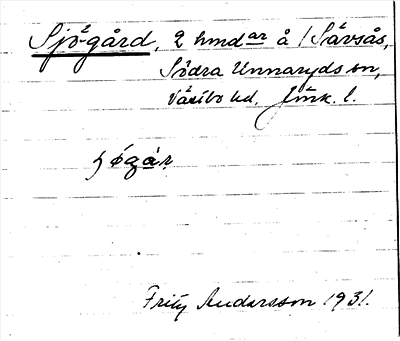 Sjögård, 2 hmdar å 1 Stävsås,
Södra Unnaryds sn,
Västbo hd, Jönk. l.
Fritz Andersson 1931.